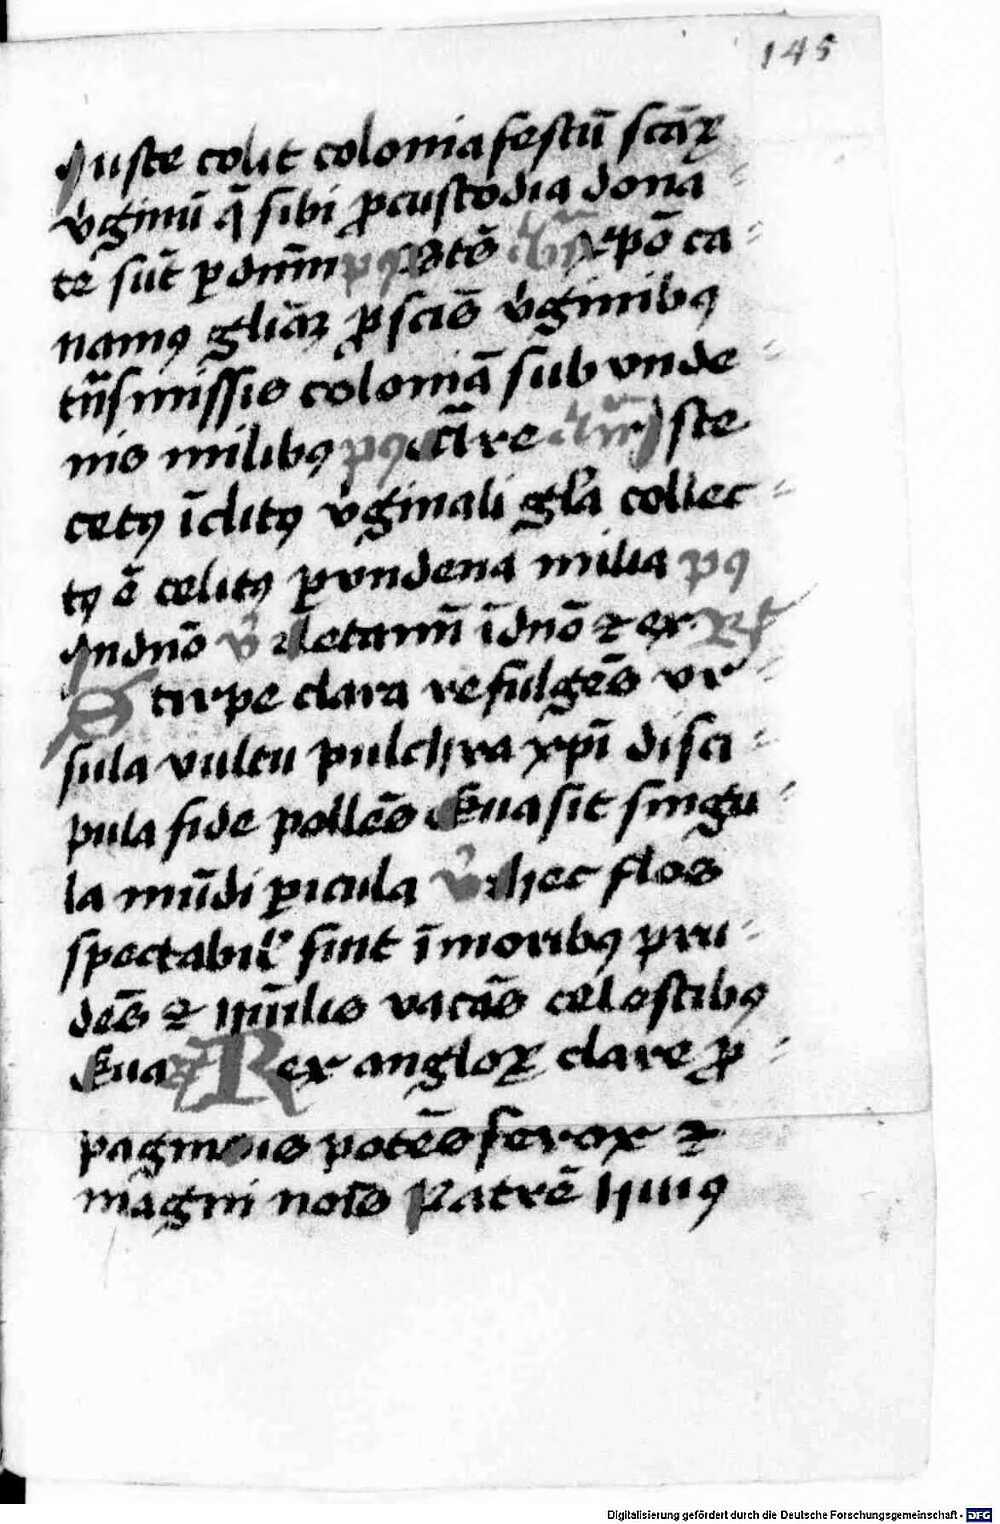 145
Juste colit colonia festū scāꝝ
v̓ginū q̄ sibi ꝓ custodia dona⸗
te sūt ꝑ dnm̄ pꝰ xp̄o ca⸗
namꝰ gliā ꝓ scīs v̓ginibꝰ
coloniā sub vnde⸗
nis milibꝰ pꝰ Iste
cetꝰ īclitꝰ v̓ginali gl̄a collec⸗
tꝰ ē celitꝰ ꝑ vndena milia pꝰ
In dn̄o v̓ Letamī ī dn̄o ⁊ ex R̄
Stirpe clara refulgēs vr⸗
sula vultu pulchra xp̄i disci⸗
pula fide pollēs Euasit singu⸗
la mūdi ꝑicula v̓ hec flos
spectabil̓ fuit ī moribꝰ pru⸗
dēs ⁊ hūilis vacās celestibꝰ
Eua Rex angloꝝ clare ꝓ⸗
paginis potēs ferox ⁊
magni nois̄ Patrē huiꝰ
Digitalisierung gefördert durch die Deutsche Forschungsgemeinschaft - DFG